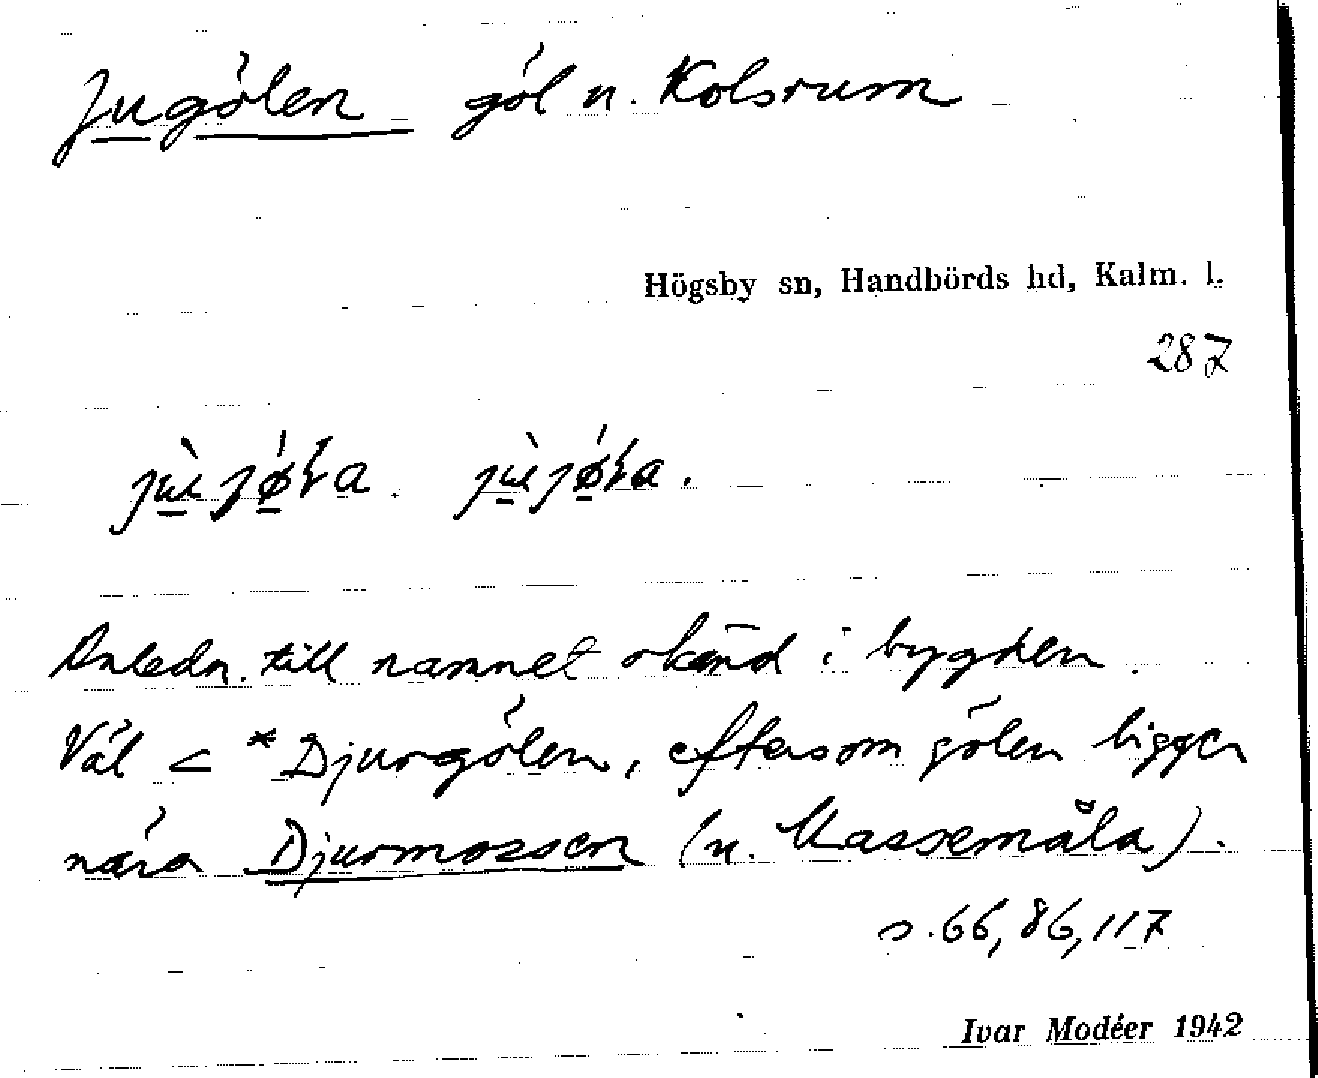 Jugölen göl u. Kolsrum
Högsby sn, Handbörds hd, Kalm. l.
287
Anledn. till namnet okänd i bygden.
Väl < *Djurgölen, eftersom gölen ligger
nära Djurmossen (u. Massemåla).
s. 66, 86, 117
Ivar Modéer 1942